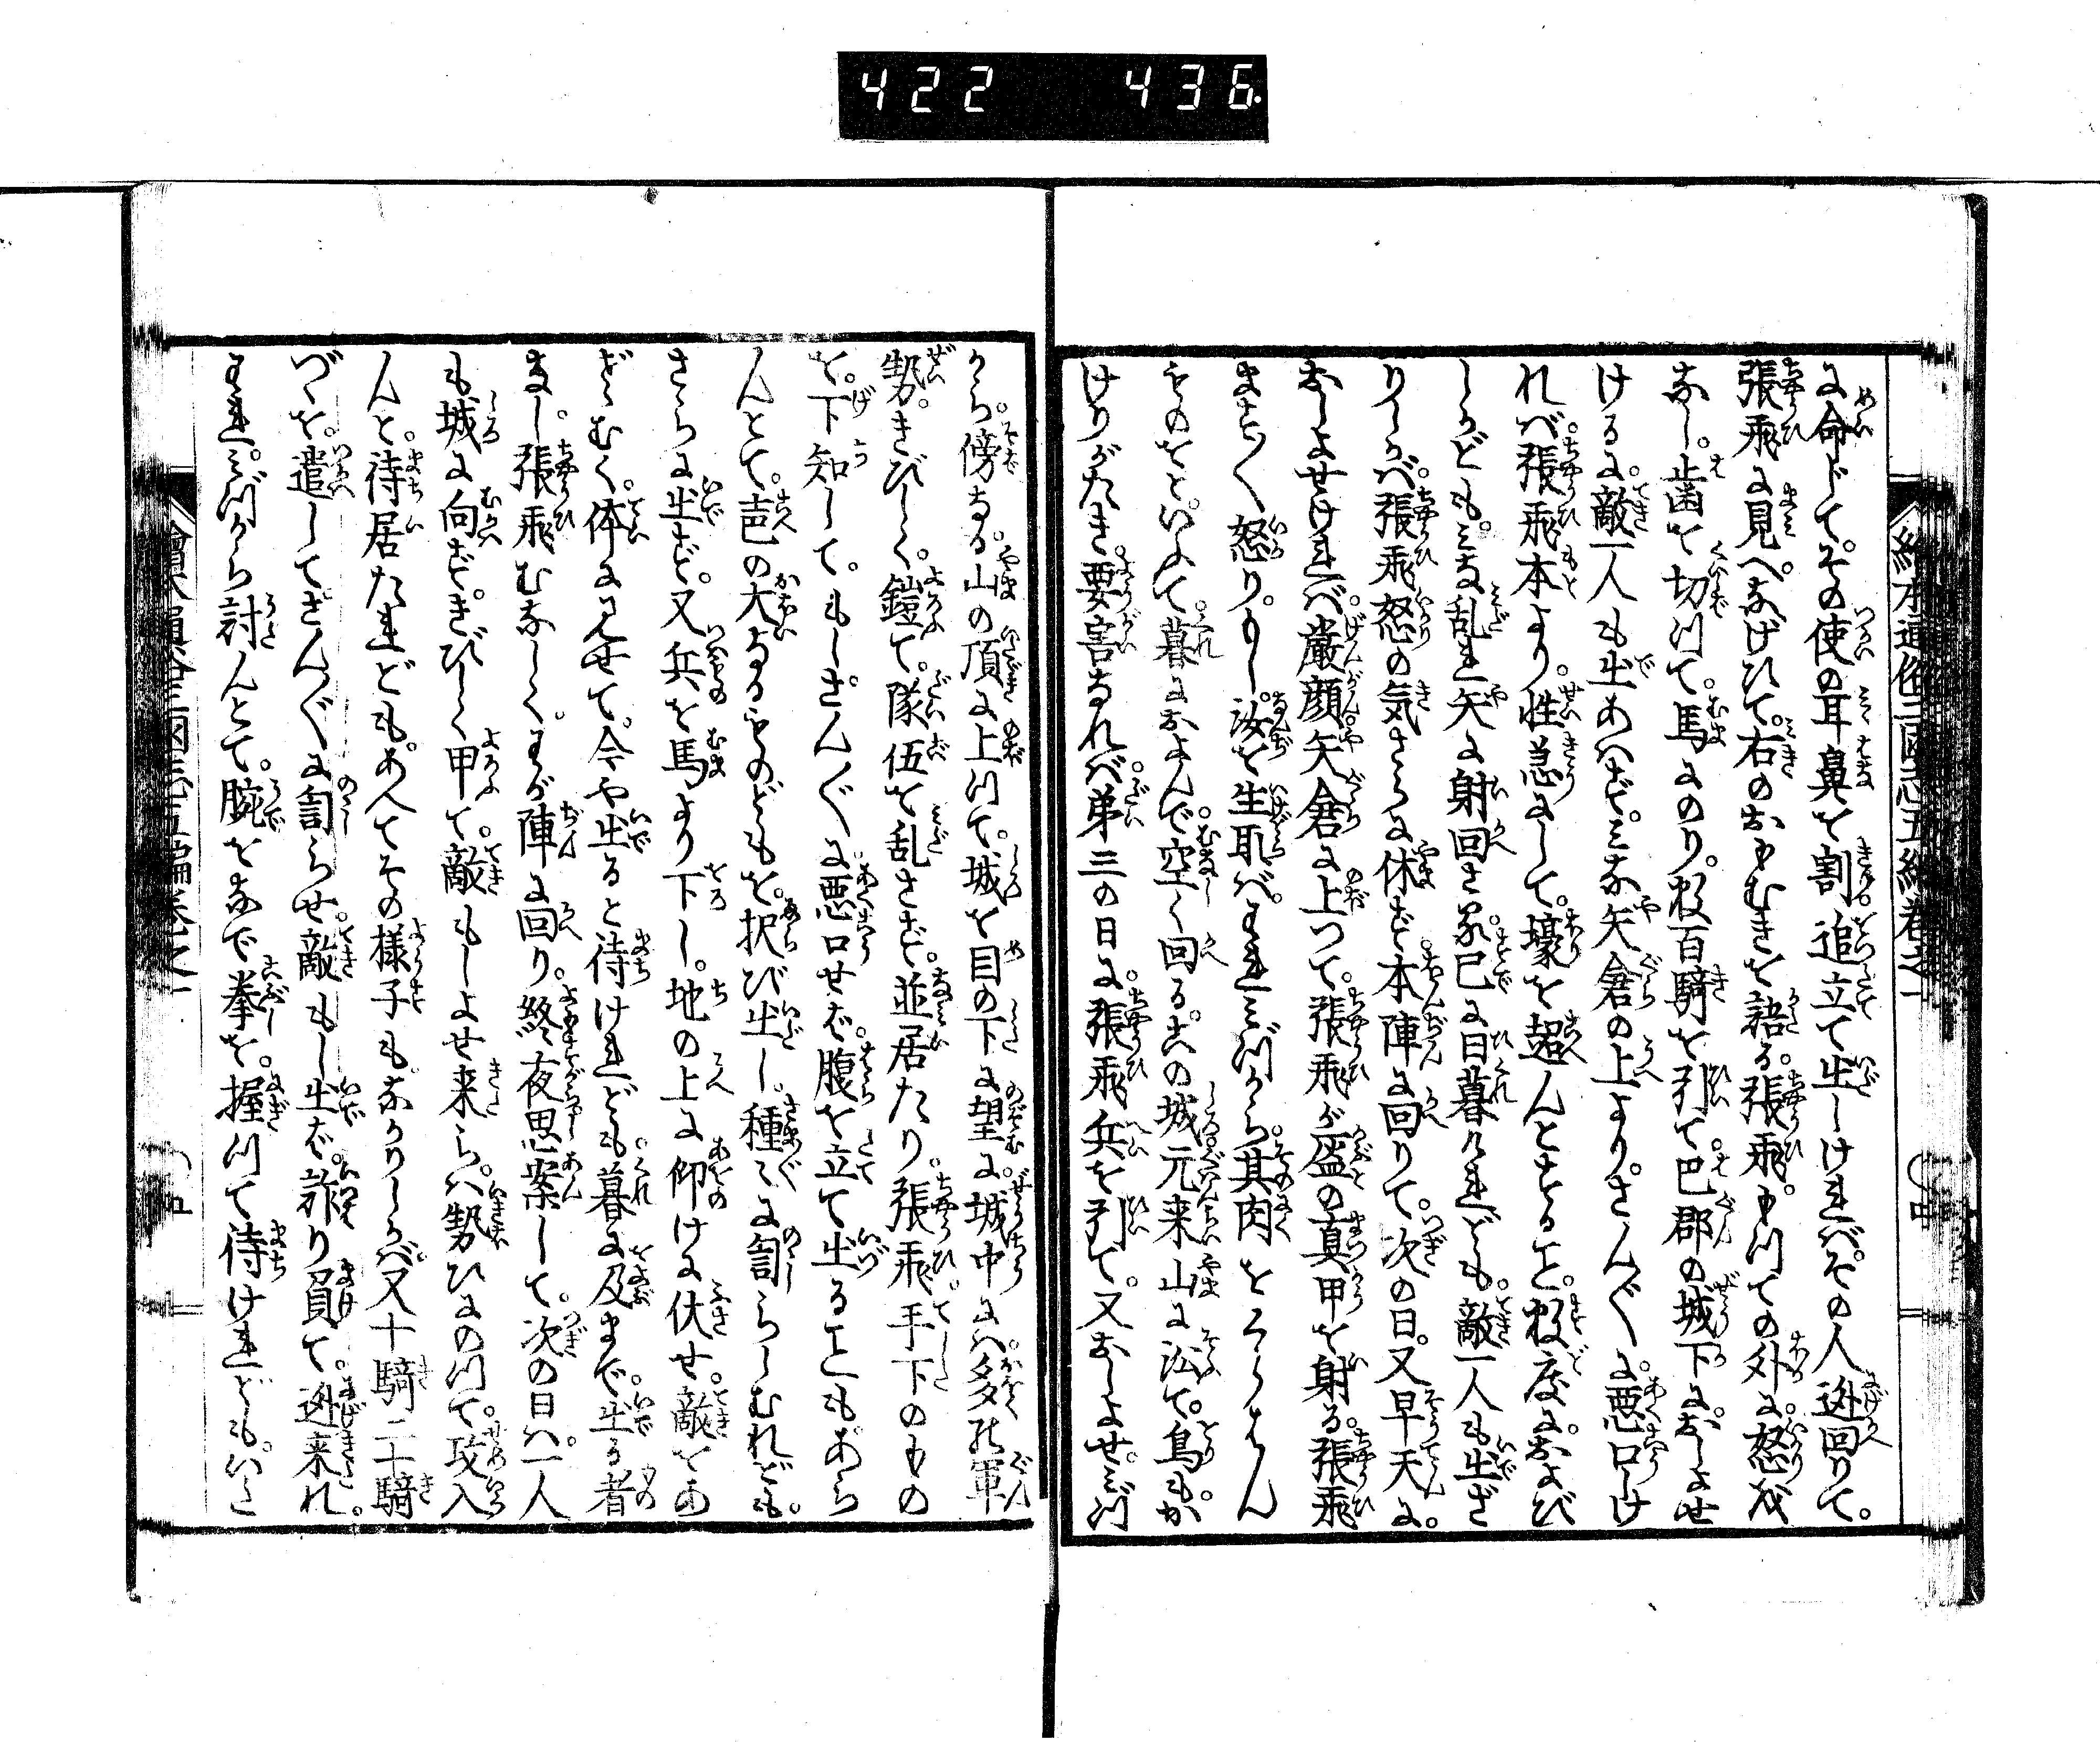 422 436
絵本通俗三國志五編巻之一
に命じて。その使の耳鼻を割。追立て出しければ。その人迯回りて。
張飛に見へなげひて。右のおもむきを語る。張飛。もつての外に。怒をな
なし。歯を切つて。馬にのり。数百騎を引て。巴郡の城下に。おしよせ
ける に。敵一人も出あはず。みな矢倉の上より。さん〴〵に。悪口しけ
れば。張飛本より。性急にして。壕を超んとすること。数度に。および
しかども。みな乱れ矢に射回され。已に日暮けれども。敵一人も出ざ
りしかば。張飛怒の気さらに休ず。本陣に回りて。次の日。又早天に。
おしよせければ。厳顔。矢倉に上つて。張飛が盔の真甲を射る。張飛
ます〳〵怒り。もし。汝を生取ば。われみづから。其肉をくらはん
ものをと。いふて暮におよんで。空く回る。此の城元来山に沿て。鳥もか
けりがたき。要害なれば。第三の日に。張飛兵を引て。又おしよせ。みづ
から。傍なる。山の頂に上つて。城を目の下に望に。城中には。多の軍
勢。きびしく。鎧て。隊伍を乱さず。並居たり。張飛。手下のもの
を。下知して。もしさん〴〵に悪口せば。腹を立て出ることもあら
んとて。声の大なるものどもを。択び出し。種々に詈らしむれども。
さらに出ず。又兵を馬より下し。地の上に仰けに伏せ。敵をあ
ざむく。体に見せて。今や出ると待けれども。暮に及まで。出る者
なし。張飛むなしく。わが陣に回り。終夜思案して。次の日は。一人
も城に向ず。きびしく甲て。敵もしよせ来らば。勢ひにのつて。攻入
んと。待居たれども。あへてその様子もなかりしかば。又十騎二十騎
づゝを。遣してさん〴〵に詈らせ。敵もし出ば。詐り負て。迯来れ。
われ。みづから討んとて。腕をなで拳を。握つて待けれども。いさ
繪本通俗三國志五編巻之一